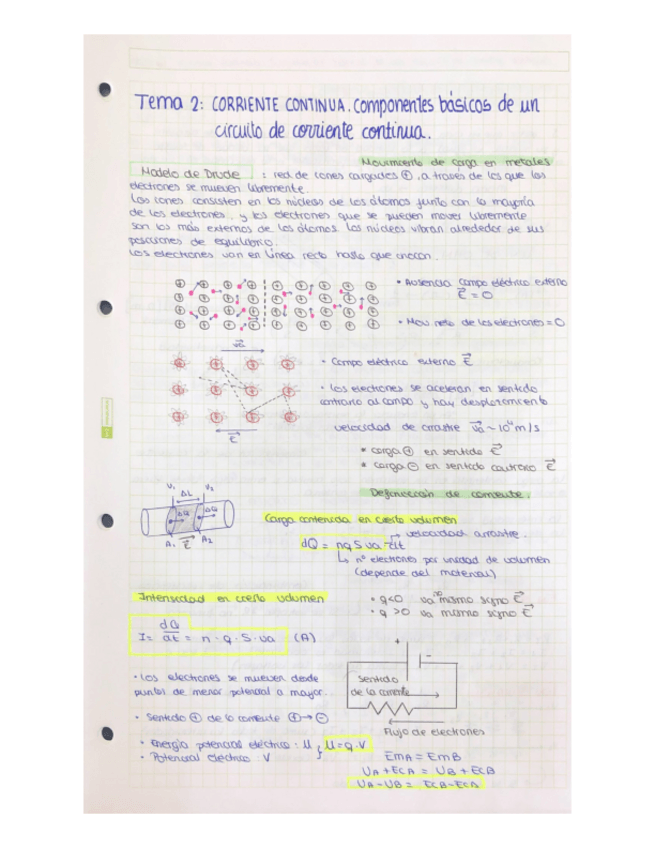 Tema 2: CORRIENTE CONTINUA. Componentes básicos de un
circuito de corriente continua.
Movimiento de carga en metales
Modelo de Drude : red de iones cargados ⊕, a través de los que los
electrones se mueven libremente.
Los iones consisten en los núcleos de los átomos junto con la mayoría
de los electrones, y los electrones que se pueden mover libremente
son los más externos de los átomos. Los núcleos vibran alrededor de sus
posiciones de equilibrio.
Los electrones van en línea recta hasta que chocan.
• Ausencia campo eléctrico externo
E⃗ = 0
• Mov neto de los electrones = 0
va⃗
• Campo eléctrico externo E⃗
• Los electrones se aceleran en sentido
contrario al campo y hay desplazamiento
E⃗
velocidad de arrastre va⃗ ~ 10⁻⁴ m/s
* carga ⊕ en sentido E⃗
* carga ⊖ en sentido contrario E⃗
Definición de corriente.
V₁ V₂
ΔL
ΔQ ΔQ
A₁ E⃗ A₂
Carga contenida en cierto volumen
dQ = nqS va dt → velocidad arrastre.
↳ nº electrones por unidad de volumen
(depende del material)
Intensidad en cierto volumen
I = dQ/dt = n · q · S · va (A)
• q<0 va no mismo signo E⃗
• q>0 va mismo signo E⃗
+ -
Sentido
de la corriente
Flujo de electrones
• Los electrones se mueven desde
puntos de menor potencial a mayor.
• Sentido ⊕ de la corriente ⊕→⊖
• Energía potencial eléctrica: U } U = q·V
• Potencial eléctrico: V
EmA = EmB
UA + EcA = UB + EcB
UA - UB = EcB - EcA